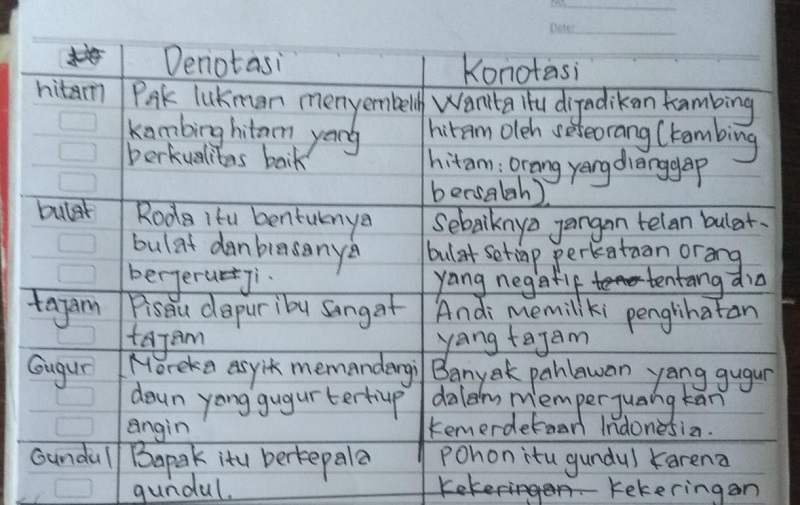 No.
Date:
Denotasi Konotasi
hitam Pak lukman menyembelih Wanita itu dijadikan kambing
kambing hitam yang hitam oleh seseorang (kambing
berkualitas baik hitam : orang yang dianggap
bersalah).
bulat Roda itu bentuknya Sebaiknya jangan telan bulat-
bulat dan biasanya bulat setiap perkataan orang
bergeruji. yang negatif tentang dia
tajam Pisau dapur ibu sangat Andi memiliki penglihatan
tajam yang tajam
Gugur Mereka asyik memandangi Banyak pahlawan yang gugur
daun yang gugur tertiup dalam memperjuangkan
angin kemerdekaan Indonesia.
Gundul Bapak itu berkepala Pohon itu gundul karena
gundul. kekeringan kekeringan